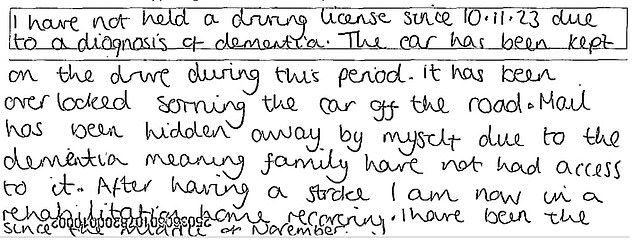 I have not held a driving license since 10.11.23 due
to a diagnosis of dementia. The car has been kept
on the drive during this period. It has been
over looked sorning the car off the road. Mail
has been hidden away by myself due to the
dementia meaning family have not had access
to it. After having a stroke I am now in a
rehabilitation home recovering. I have been the
since the middle of November.